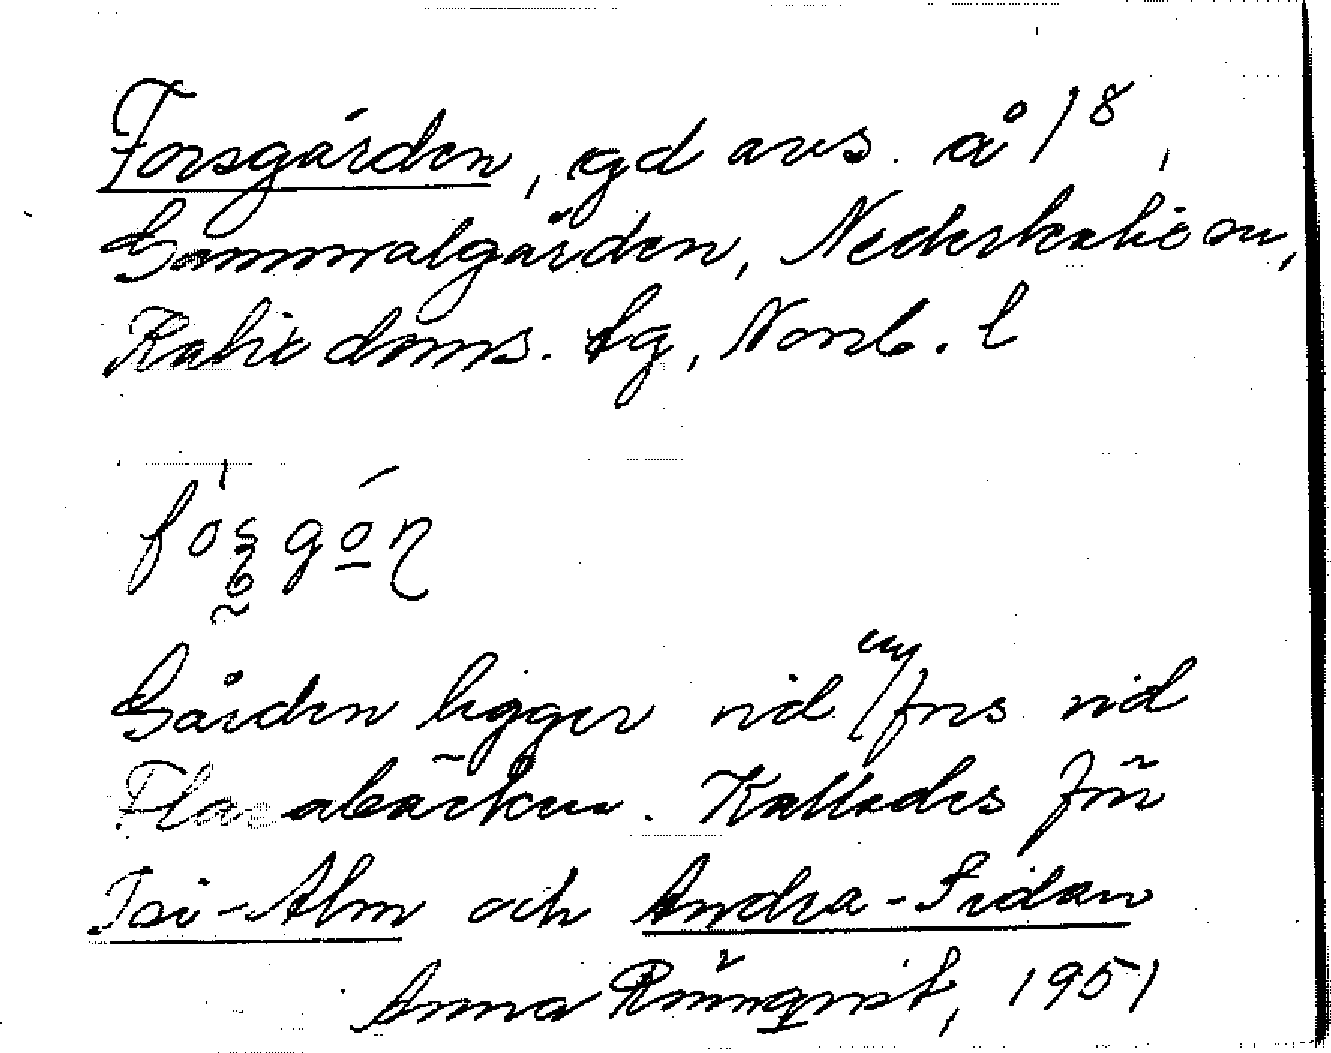 Forsgården, gd avs. å 1⁸,
Gammalgården, Nederkalix sn,
Kalix doms. tg, Norrb. l
Gården ligger vid en fors vid
Kallades förr
och Andra-Sidan
Anna Rönnqvist, 1951